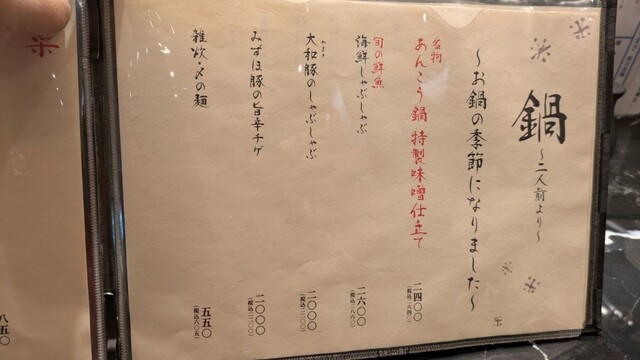 鍋
〜二人前より〜
〜お鍋の季節になりました〜
名物
あんこう鍋 特製味噌仕立て
二四〇〇
(税込二六四〇)
旬の鮮魚
海鮮しゃぶしゃぶ
二六〇〇
(税込二八六〇)
大和豚のしゃぶしゃぶ
二〇〇〇
(税込二二〇〇)
みずほ豚の旨辛チゲ
二〇〇〇
(税込二二〇〇)
雑炊〆の麺
五五〇
(税込六〇五)
八五〇